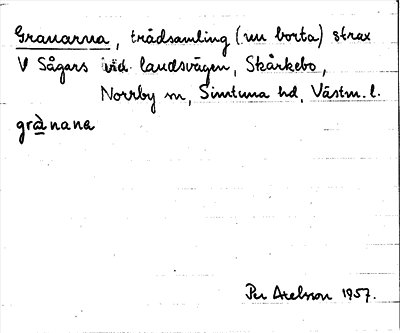 Granarna, trädsamling (nu borta) strax
V Sågars vid landsvägen, Skärkebo,
Norrby sn, Simtuna hd, Västm. l.
grànana
Per Axelsson 1957.